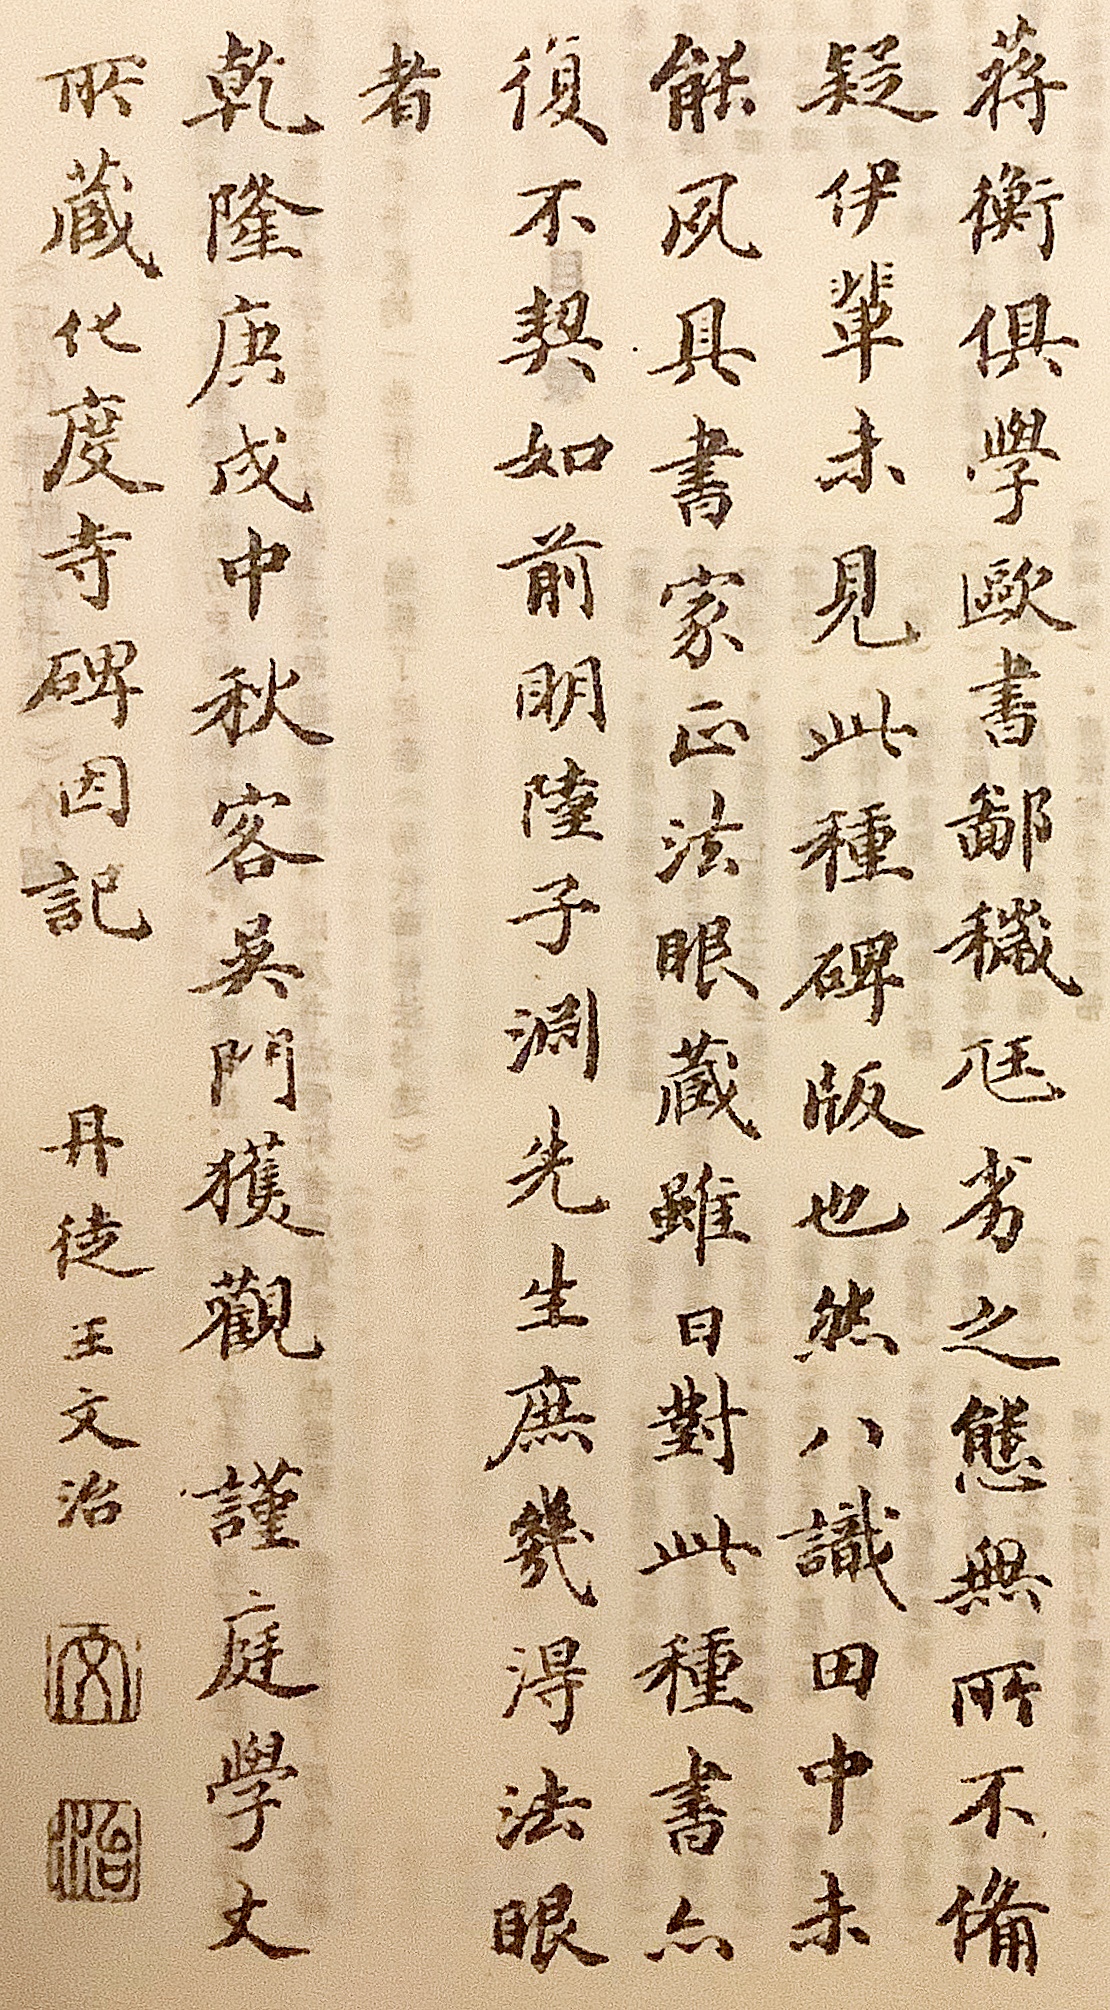 蒋衡俱學歐書鄙穢尫劣之態無所不備
疑伊輩未見此種碑版也然八識田中未
能夙具書家正法眼藏雖日對此種書亦
復不契如前明陸子淵先生庶幾得法眼
者
乾隆庚戌中秋客吳門獲觀 謹庭學丈
所藏化度寺碑因記 丹徒王文治
文
治